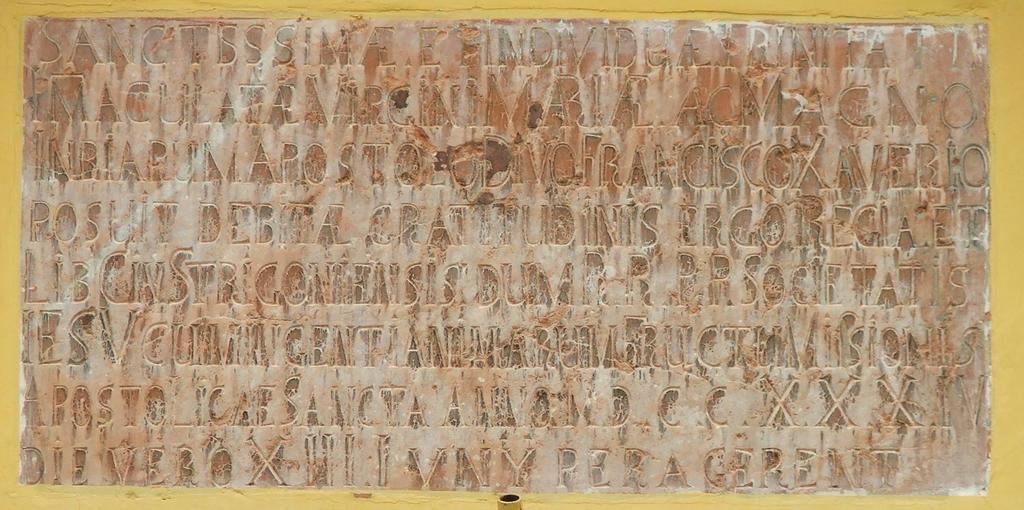 SANCTISSIMÆ ET INDIVIDUÆ TRINITATI
IMACULATÆ VIRGINI MARIÆ AC MAGNO
INDIARUM APOSTOLO DIVO FRANCISCO XAVERIO
POSUIT DEBITÆ GRATITUDINIS ERGO REGIA ET
LIB CIVI STRIGONIENSIS DUM P P P P SOCIETATIS
IESV CUM INGENTI ANIMARUM FRUCTU MISSIONIS
APOSTOLICÆ SANCTA ANNO N D C C XXX IV
DIE VERO X IIII IVNY PERAGERENT